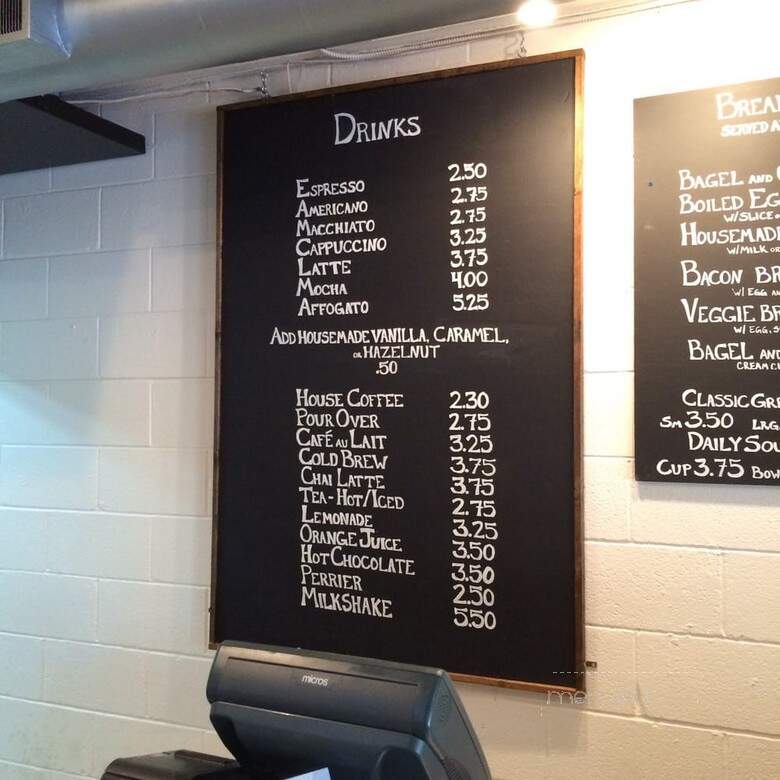 DRINKS
ESPRESSO 2.50
AMERICANO 2.75
MACCHIATO 2.75
CAPPUCCINO 3.25
LATTE 3.75
MOCHA 4.00
AFFOGATO 5.25
ADD HOUSEMADE VANILLA, CARAMEL,
OR HAZELNUT
.50
HOUSE COFFEE 2.30
POUR OVER 2.75
CAFÉ AU LAIT 3.25
COLD BREW 3.75
CHAI LATTE 3.75
TEA-HOT/ICED 2.75
LEMONADE 3.25
ORANGE JUICE 3.50
HOT CHOCOLATE 3.50
PERRIER 2.50
MILKSHAKE 5.50
SERVED
BAGEL AND
BOILED
W/SLICE
HOUSEMADE
W/MILK OR
BACON
W/ EGG
VEGGIE
W/ EGG,
BAGEL AND
CREAM
CLASSIC
SM 3.50 LRG
DAILY
CUP 3.75
micros